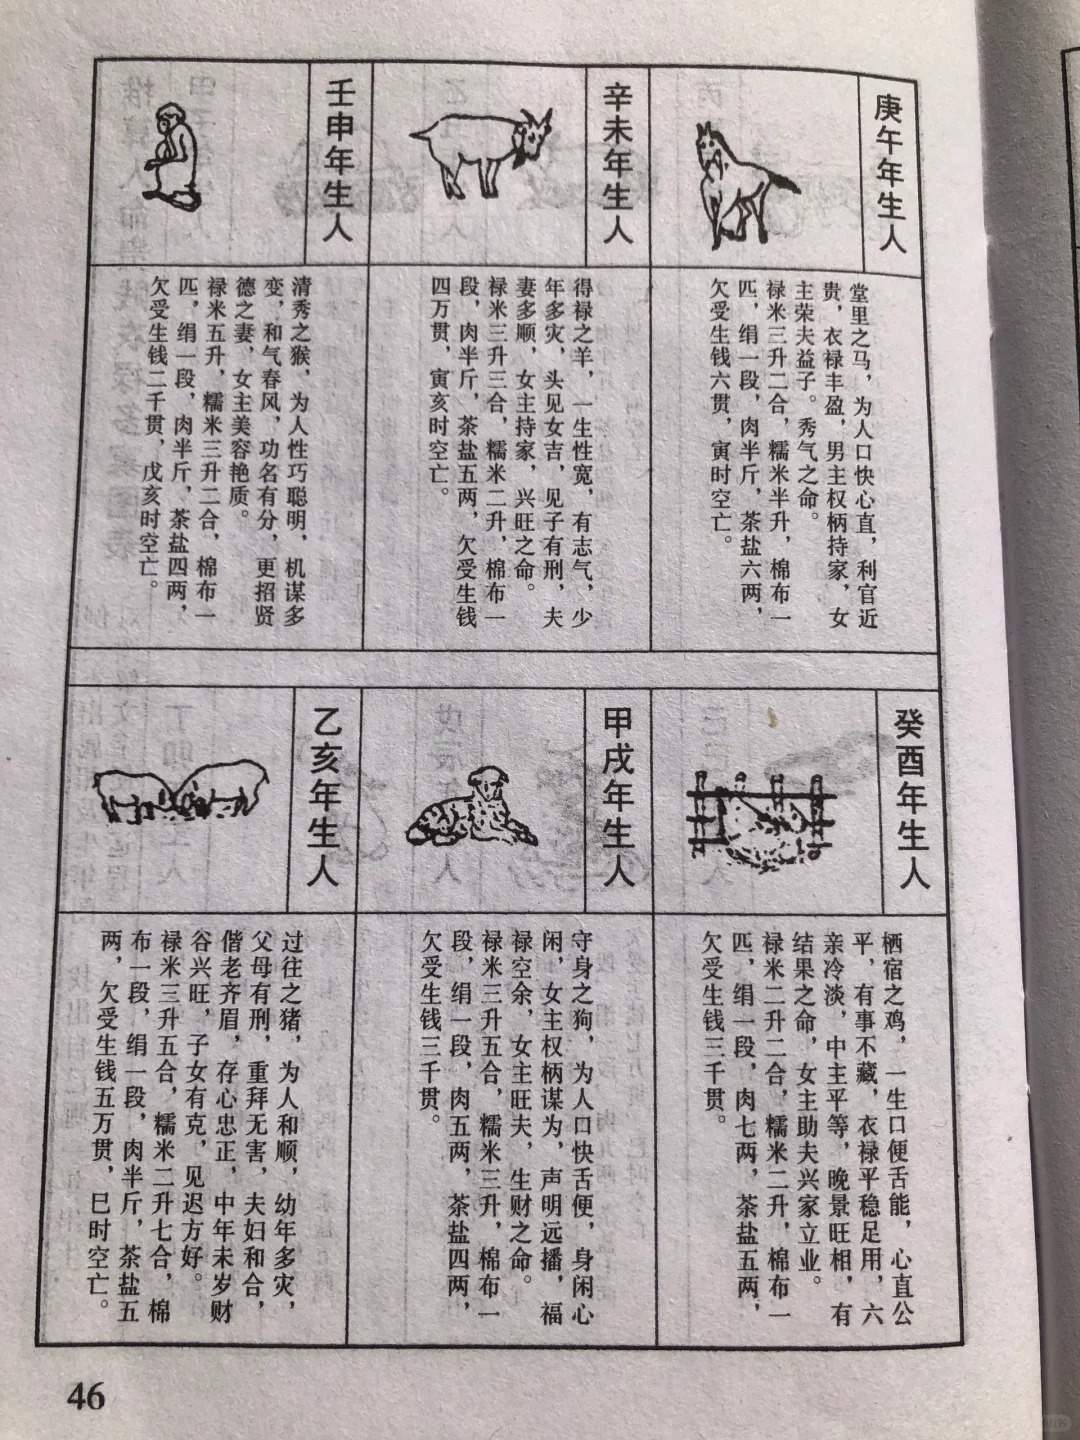 庚午年生人
堂里之马，为人口快心直，利官近
贵，衣禄丰盈，男主权柄持家，女
主荣夫益子。秀气之命。
禄米三升二合，糯米半升，棉布一
匹，绢一段，肉半斤，茶盐六两，
欠受生钱六贯，寅时空亡。
辛未年生人
得禄之羊，一生性宽，有志气，少
年多灾，头见女吉，见子有刑，夫
妻多顺，女主持家，兴旺之命。
禄米三升三合，糯米二升，棉布一
段，肉半斤，茶盐五两，欠受生钱
四万贯，寅亥时空亡。
壬申年生人
清秀之猴，为人性巧聪明，机谋多
变，和气春风，功名有分，更招贤
德之妻，女主美容艳质。
禄米五升，糯米三升二合，棉布一
匹，绢一段，肉半斤，茶盐四两，
欠受生钱二千贯，戊亥时空亡。
癸酉年生人
栖宿之鸡，一生口便舌能，心直公
平，有事不藏，衣禄平稳足用，六
亲冷淡，中主平等，晚景旺相，有
结果之命，女主助夫兴家立业。
禄米二升二合，糯米二升，棉布一
匹，绢一段，肉七两，茶盐五两，
欠受生钱三千贯。
甲戌年生人
守身之狗，为人口快舌便，身闲心
闲，女主权柄谋为，声明远播，福
禄空余，女主旺夫，生财之命。
禄米三升五合，糯米三升，棉布一
段，绢一段，肉五两，茶盐四两，
欠受生钱三千贯。
乙亥年生人
过往之猪，为人和顺，幼年多灾，
父母有刑，重拜无害，夫妇和合，
偕老齐眉，存心忠正，中年未岁财
谷兴旺，子女有克，见迟方好。
禄米三升五合，糯米二升七合，棉
布一段，绢一段，肉半斤，茶盐五
两，欠受生钱五万贯，巳时空亡。
46